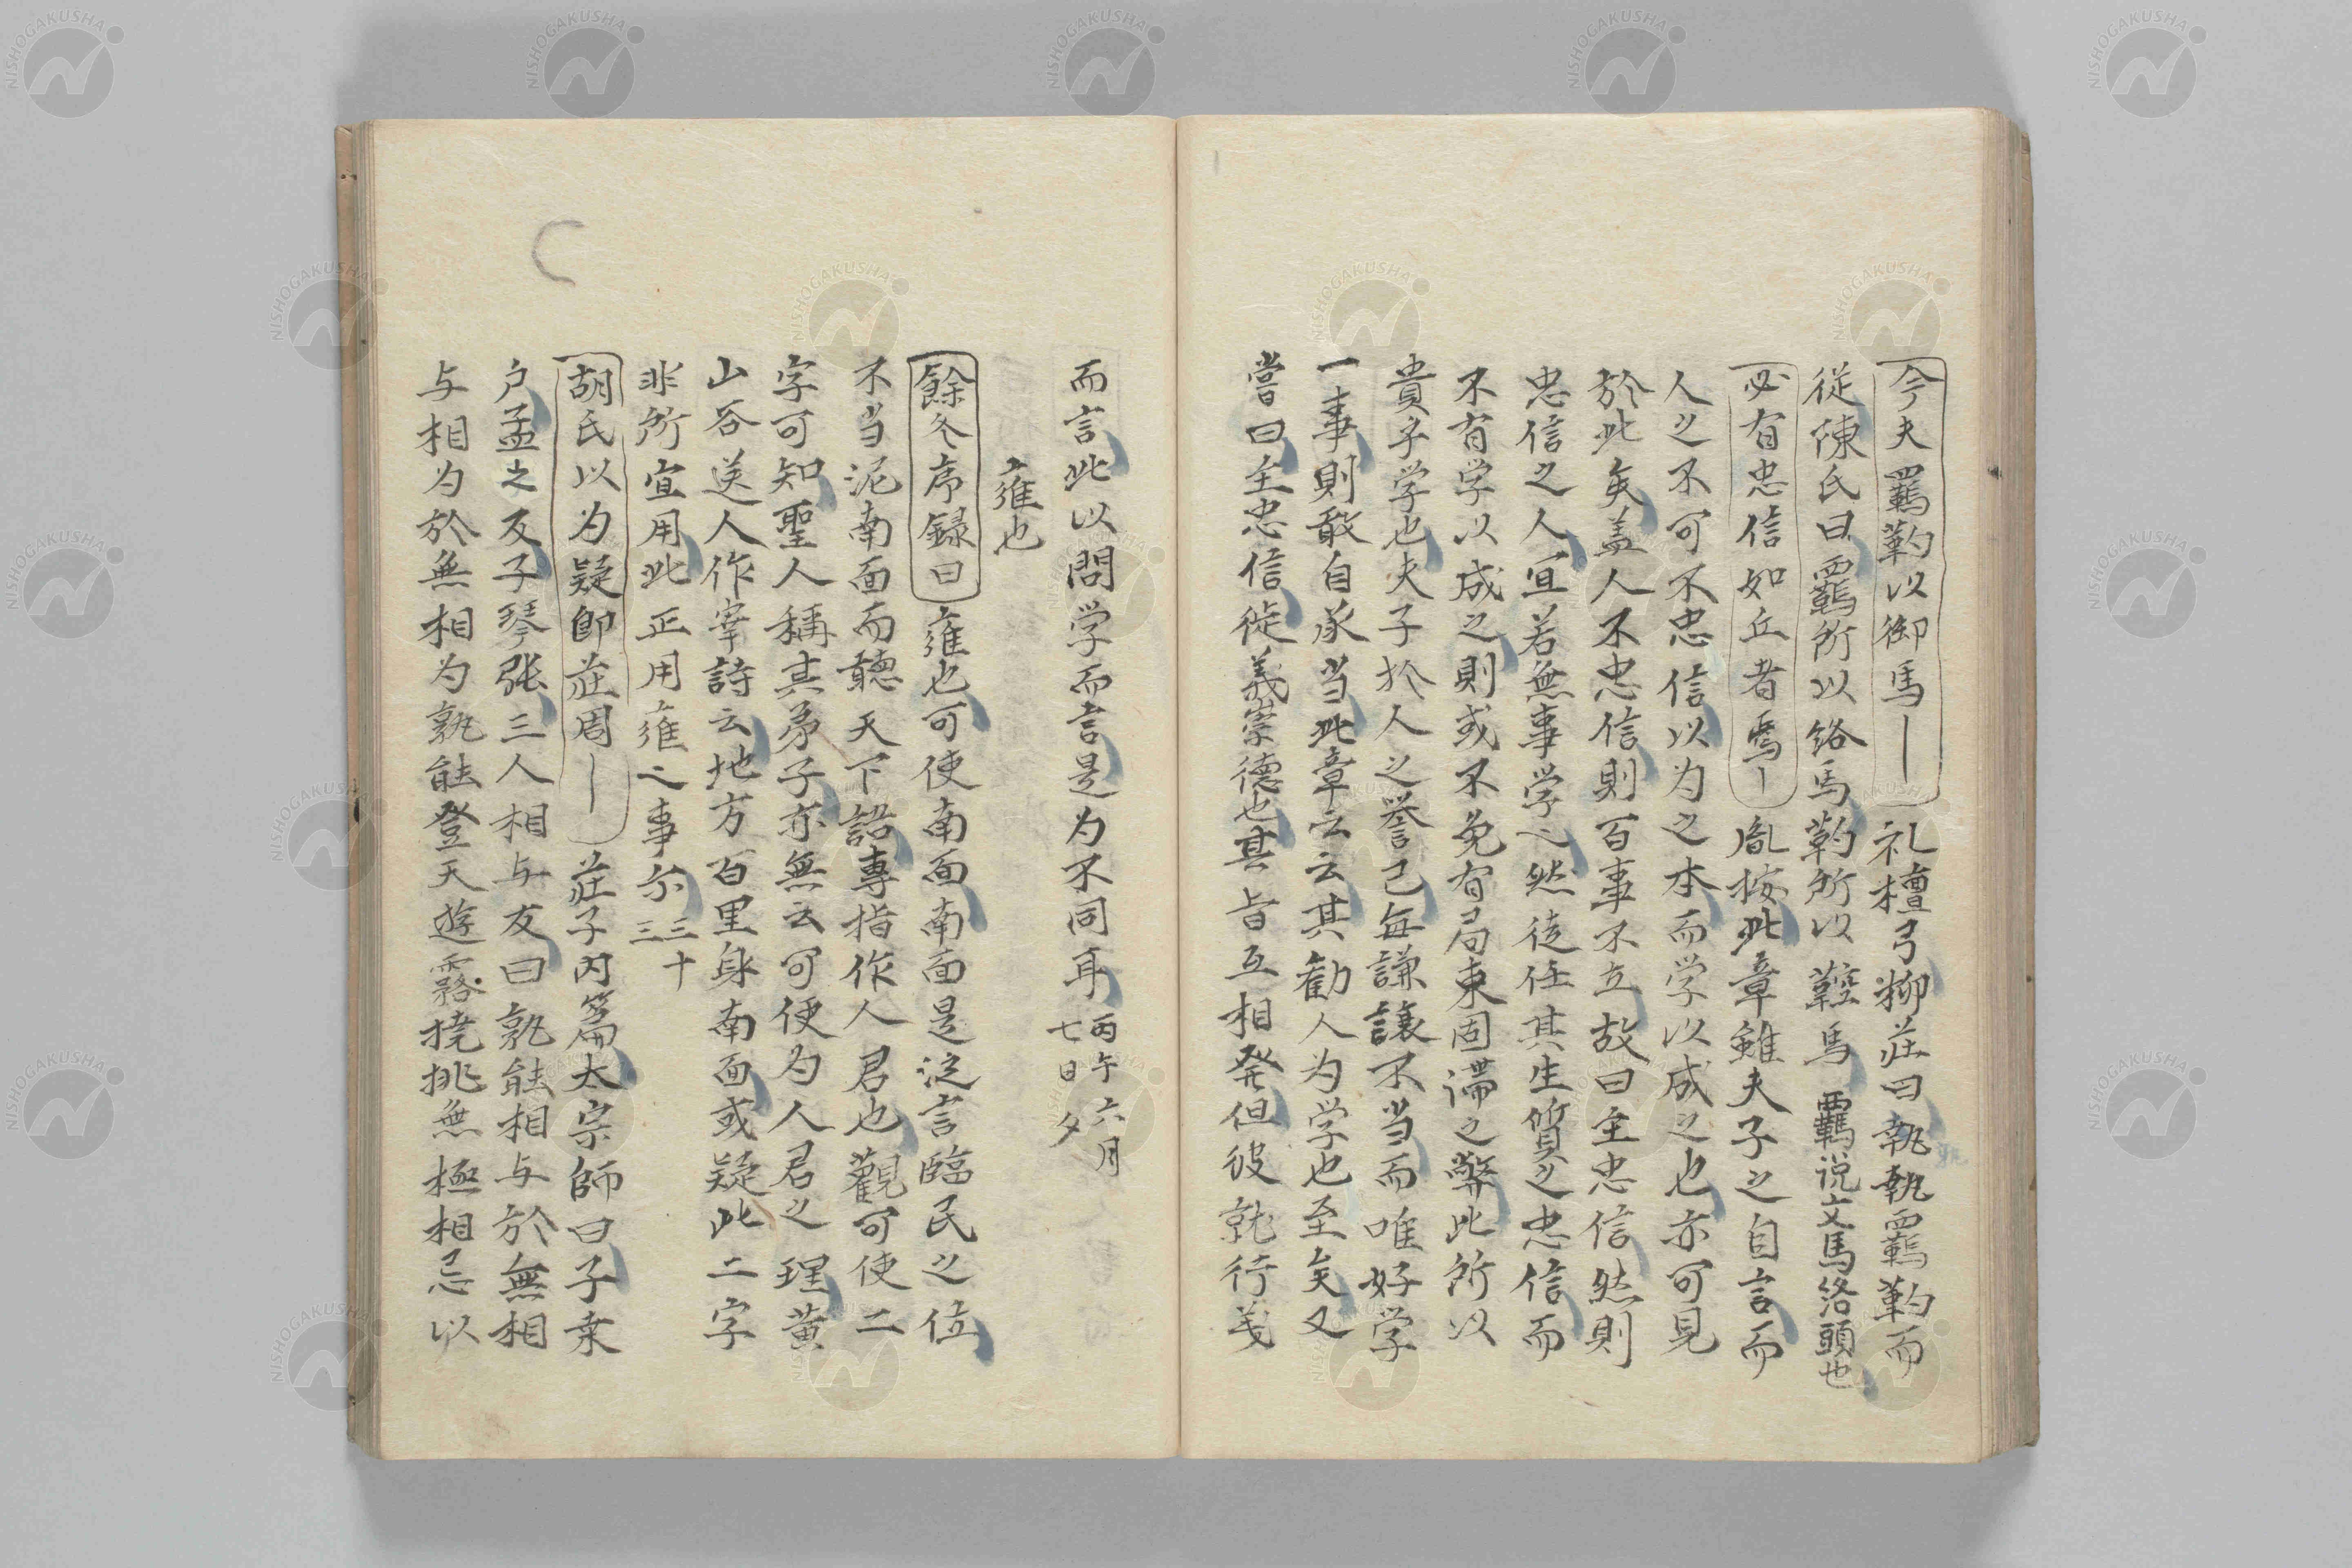 今夫羈靮以御馬｜礼檀弓柳莊曰執執羈靮而
従陳氏曰羈所以絡馬靮所以鞚馬羈説文馬絡頭也
必有忠信如丘者焉｜胤按此章雖夫子之自言而
人之不可不忠信以为之本而学以成之也亦可見
於此矣盖人不忠信則百事不立故曰主忠信然則
忠信之人宜若無事学〻然徒任其生質之忠信而
不有学以成之則或不免有局束固滞之弊此所以
貴乎学也夫子於人之誉己毎謙讓不当而唯好学
一事則敢自承当此章云云其勧人为学也至矣又
嘗曰主忠信徙義崇德也其旨互相発但彼就行義
而言此以問学而言是为不同耳丙午六月
七日夕
雍也
餘冬序録曰雍也可使南面南面是泛言臨民之位
不当泥南面而聽天下語專指作人君也觀可使二
字可知聖人稱其弟子亦無云可使为人君之理黄
山谷送人作宰詩云地方百里身南面或疑此二字
非所宜用此正用雍之事尓三十
三
胡氏以为疑即莊周｜莊子内篇太宗師曰子桒
户孟之反子琴张三人相与友曰孰能相与於無相
与相为於無相为孰能登天遊霧撓挑無極相忌以
NISHOGAKUSHA